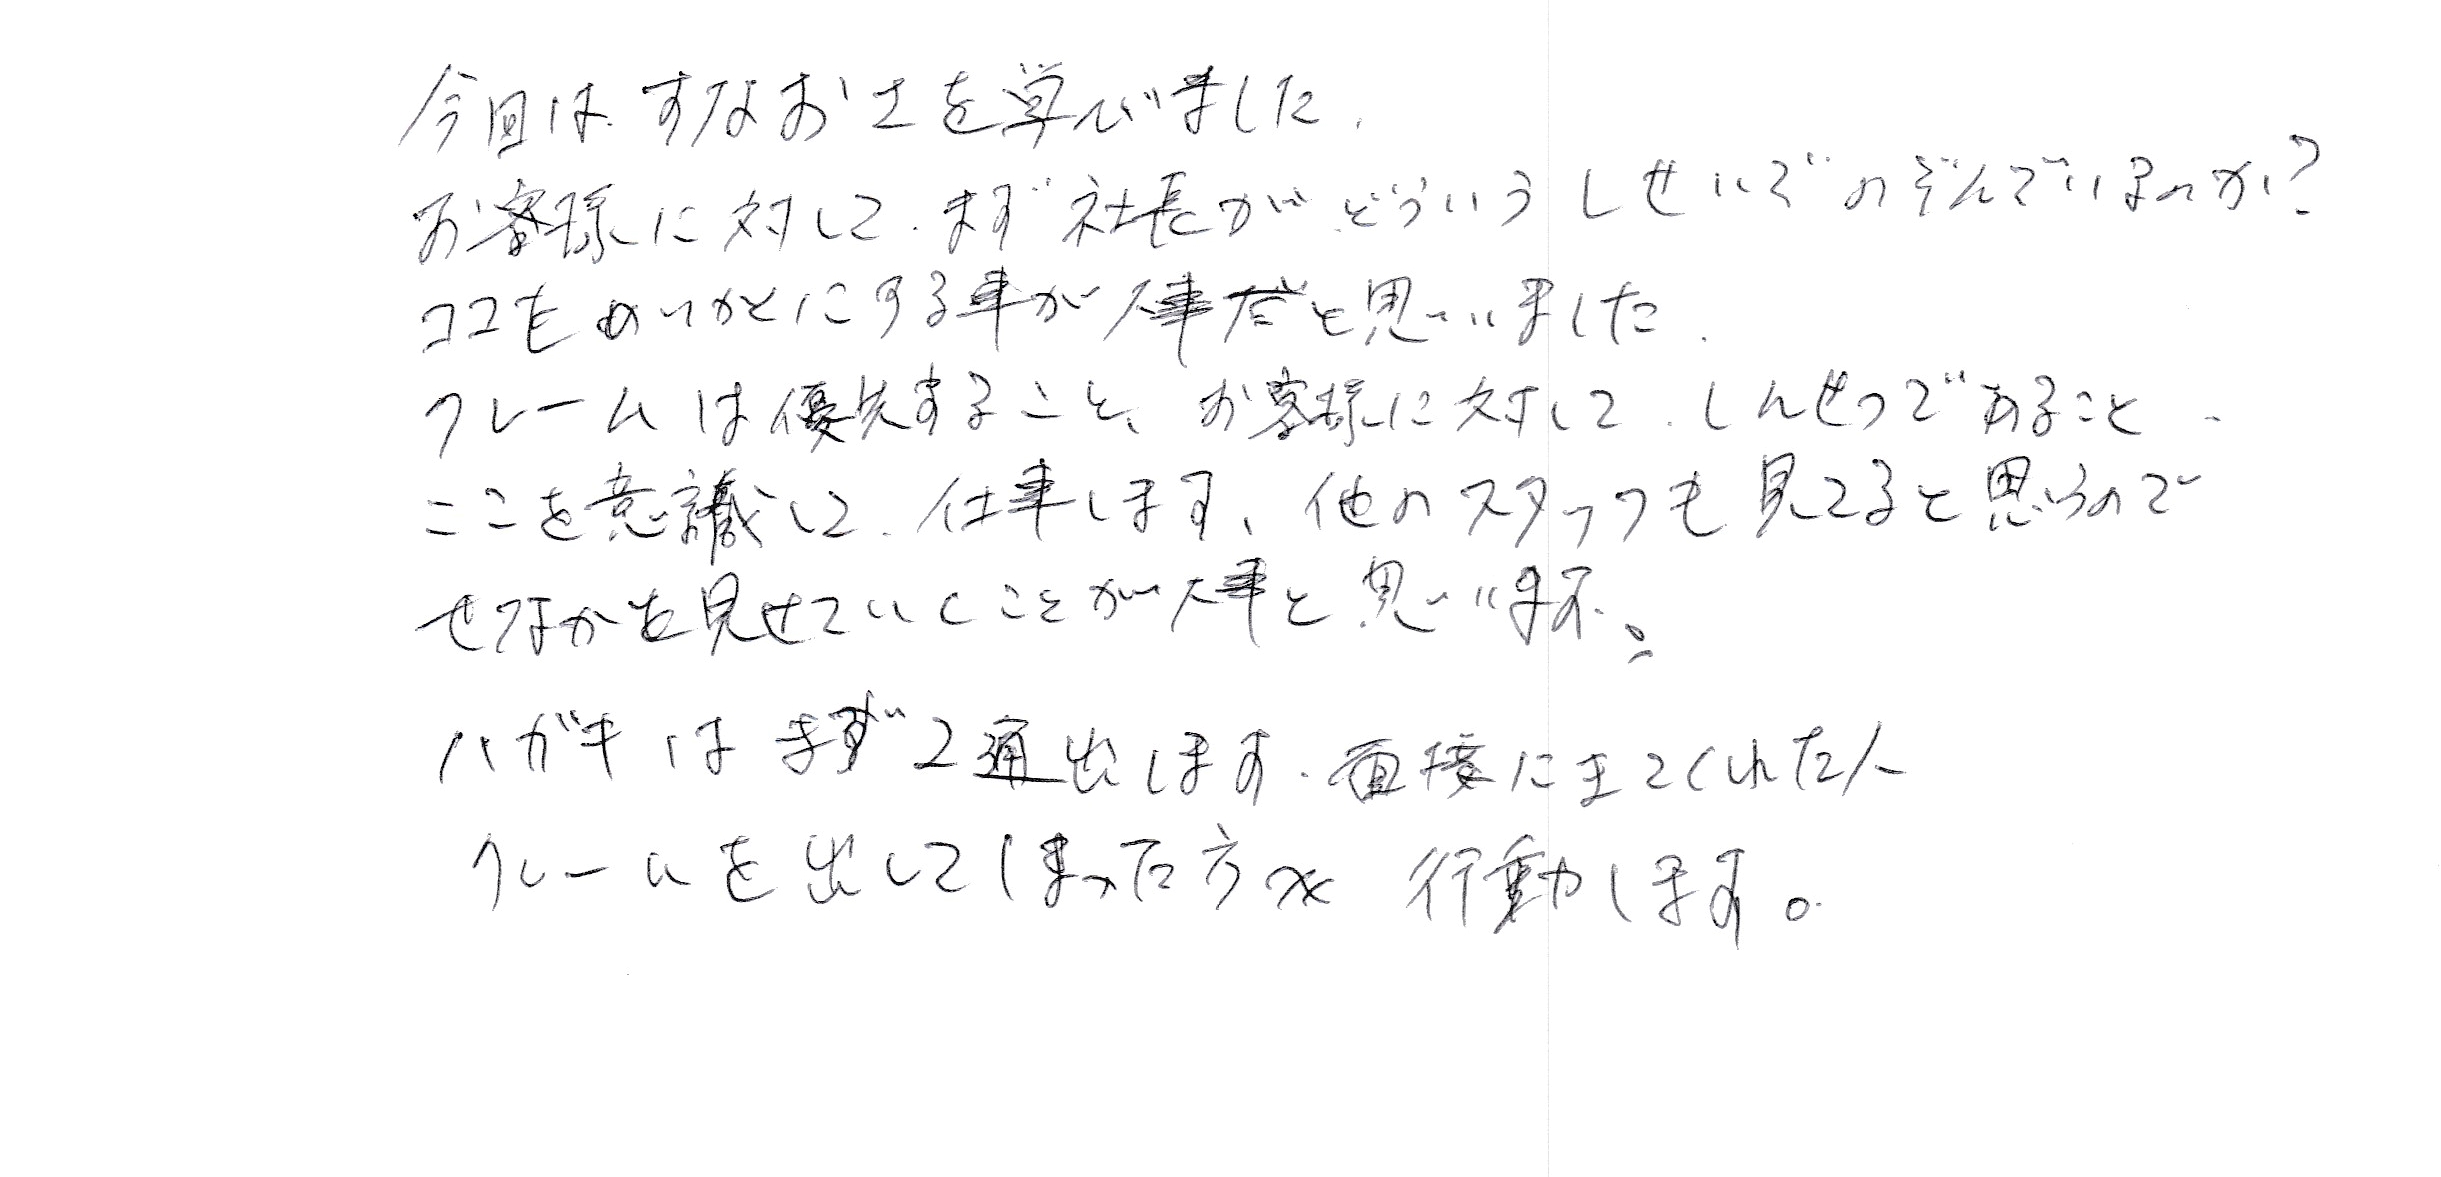 今回は すなおさを学びました.
お客様に対して.まず社長がどういうしせいでのぞんでいるのか?
ココをめいかくにする事が大事だと思いました.
クレームは優先すること、お客様に対して.しんせつであること.
ここを意識して.仕事します、他のスタッフも見てると思うので
せなかを見せていくことが大事と思います。
ハガキはまず2通出します.面接にきてくれた人
クレームを出してしまった方へ 行動します。